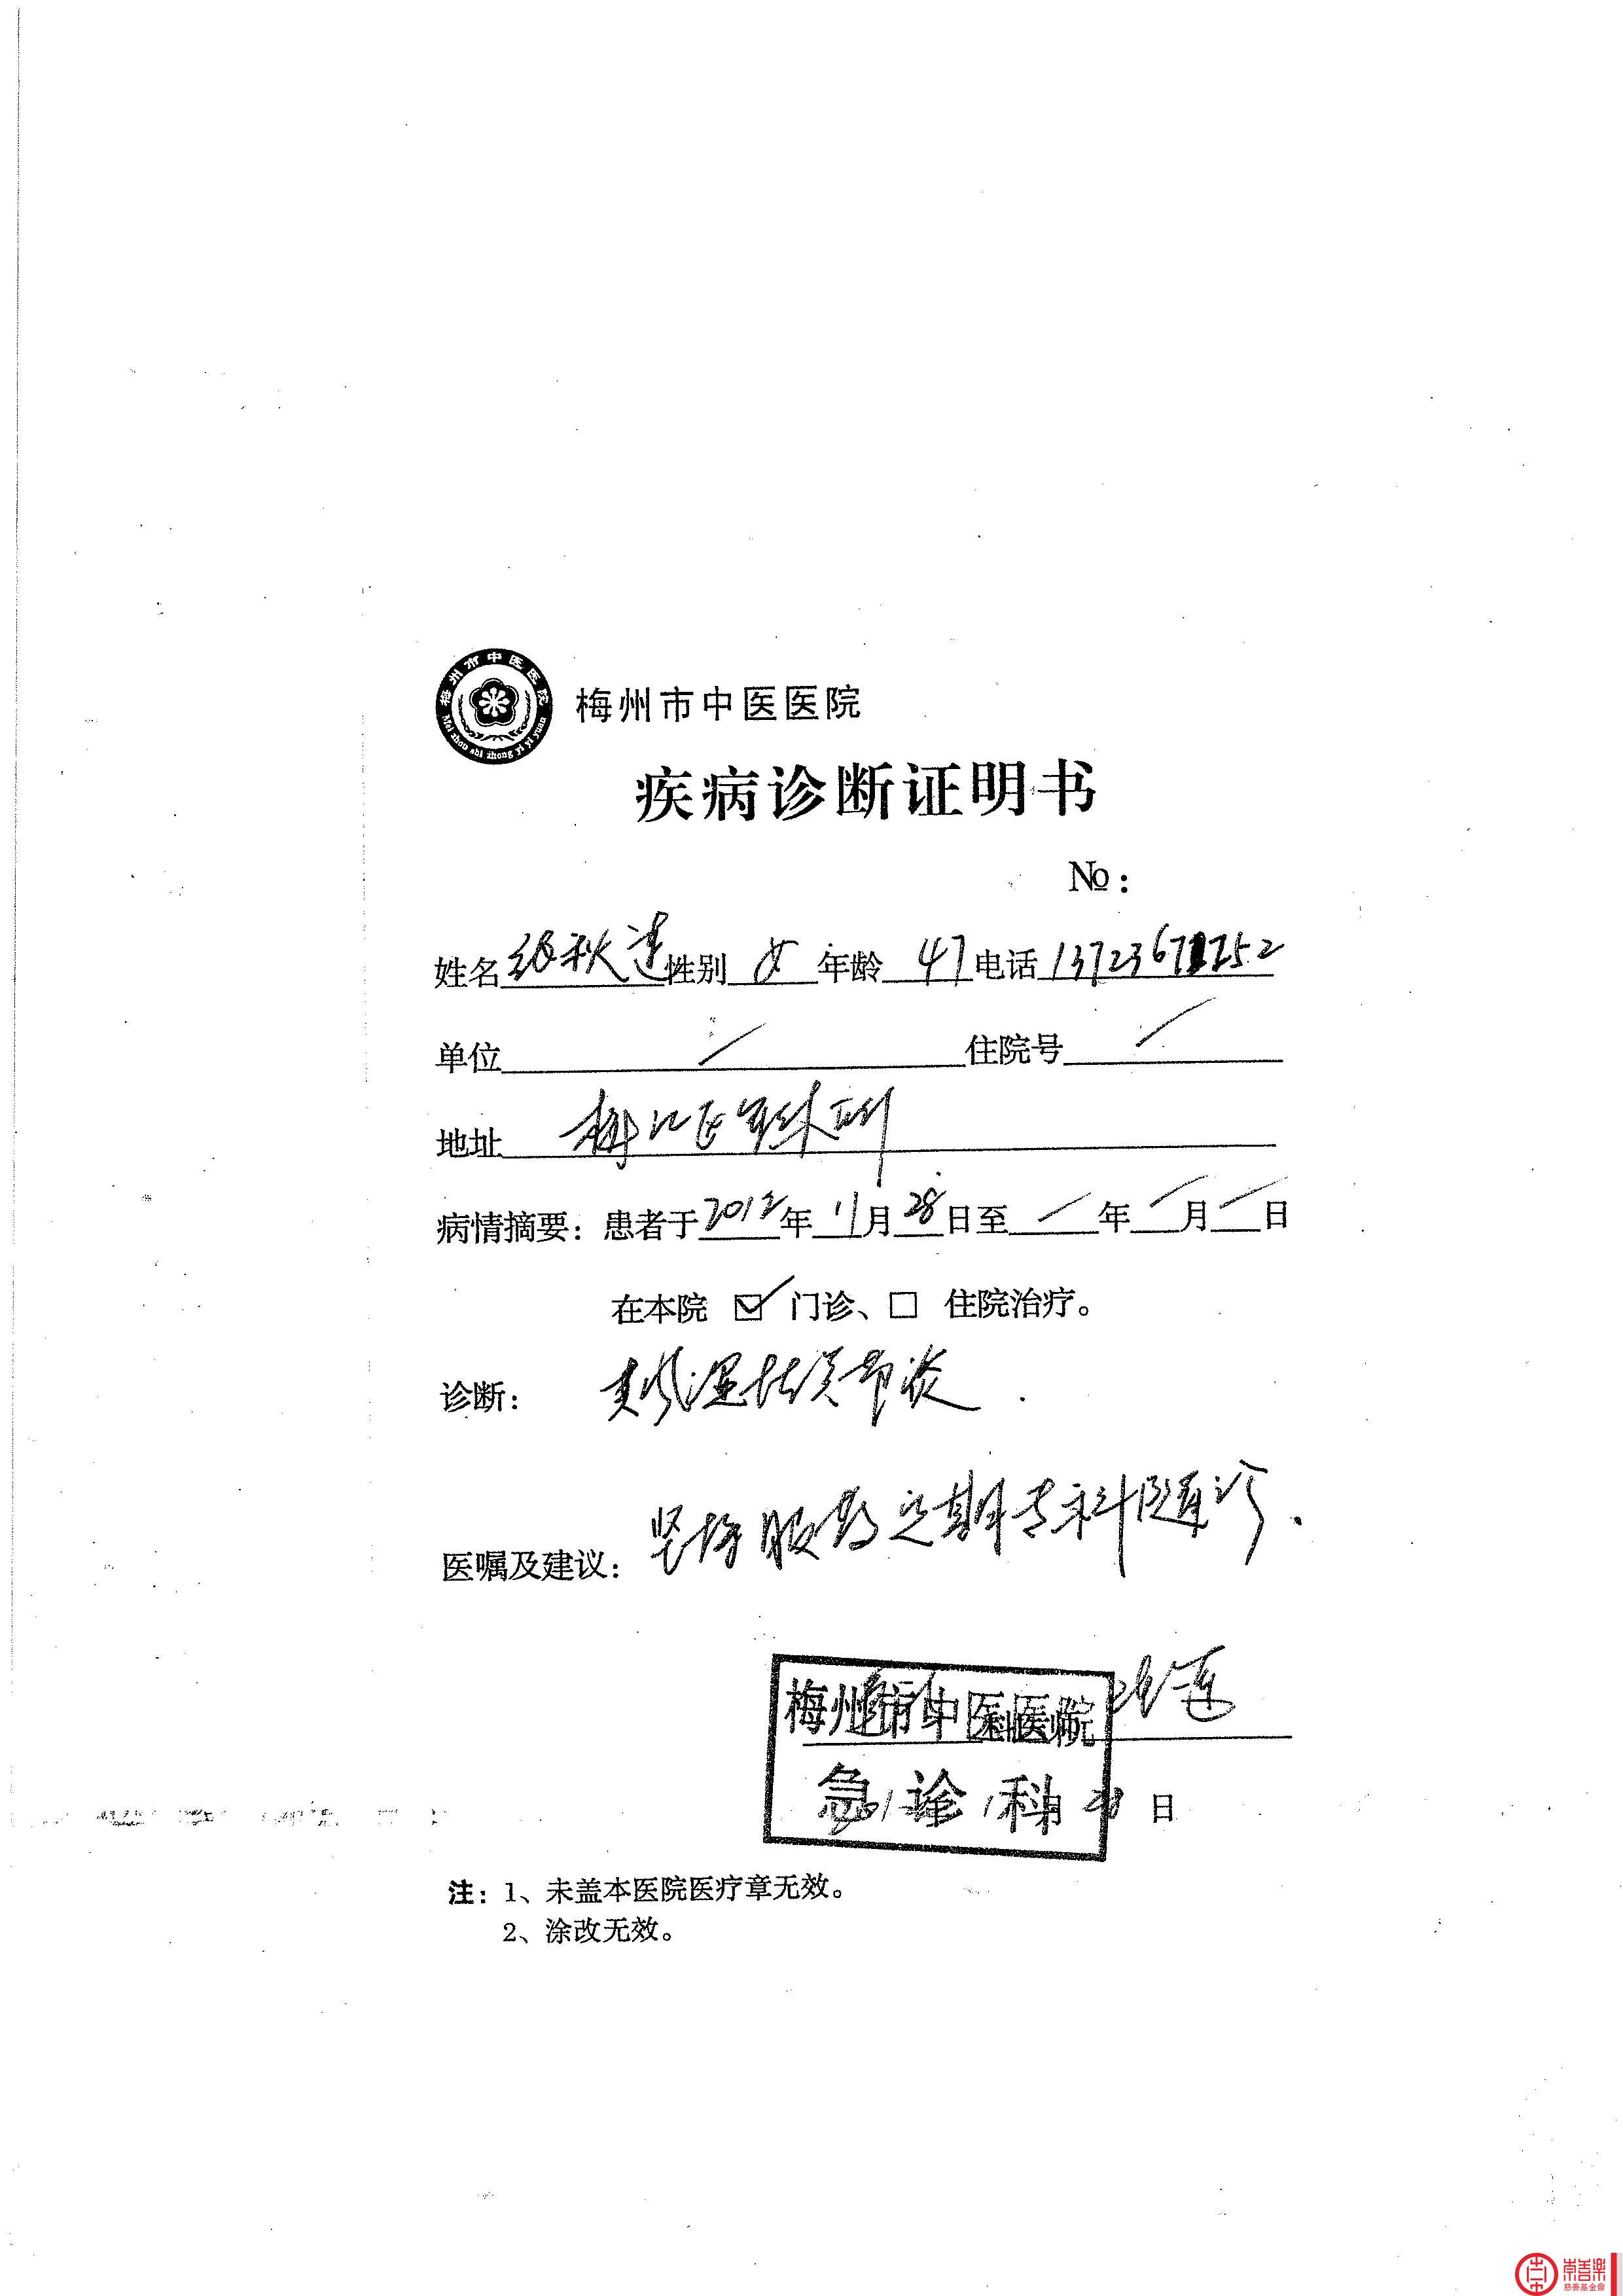 梅州市中医医院
Mei zhou shi zhong yi yi yuan
梅州市中医医院
疾病诊断证明书
No:
姓名 秋莲 性别 女 年龄 47 电话
单位 / 住院号 /
地址 梅江区
病情摘要：患者于2012年11月28日至/年/月/日
在本院 ☑ 门诊、□ 住院治疗。
诊断： 类风湿性关节炎.
医嘱及建议： 坚持服药定期专科随诊.
梅州市中医医院
科医师
急诊科
年 月 28 日
注：1、未盖本医院医疗章无效。
2、涂改无效。
崇善楽
慈善基金會